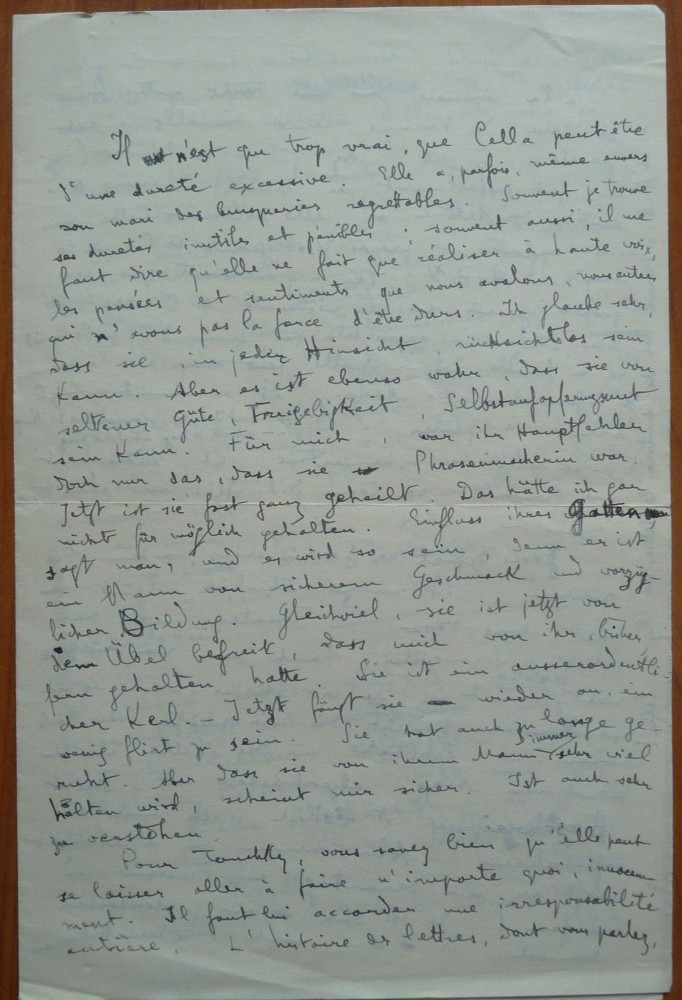 Il n'est que trop vrai, que Cella peut être
d'une dureté excessive. Elle a, parfois, même envers
son mari des brusqueries regrettables. Souvent je trouve
ses duretés inutiles et pénibles ; souvent aussi, il me
faut dire qu'elle ne fait que réaliser à haute voix,
les pensées et sentiments que nous avalons, nous autres
qui n'avons pas la force d'être durs. Ich glaube sehr,
dass sie in jeder Hinsicht rücksichtslos sein
kann. Aber es ist ebenso wahr, dass sie von
seltener Güte, Freigebigkeit, Selbstaufopferungsmut
sein kann. Für mich, war ihr Hauptfehler
doch nur das, dass sie Phrasenmacherin war.
Jetzt ist sie fast ganz geheilt. Das hätte ich gar
nicht für möglich gehalten. Einfluss ihres Gatten
sagt man, und es wird so sein, denn er ist
ein Mann von sicherem Geschmack und vorzüg-
licher Bildung. Gleichviel, sie ist jetzt von
dem Übel befreit, dass mich von ihr, bisher
fern gehalten hatte. Sie ist ein ausserordentli-
cher Kerl. – Jetzt fängt sie wieder an, ein
wenig flirt zu sein. Sie hat auch zu lange ge-
ruht. Aber dass sie von ihrem Mann immer sehr viel
halten wird, scheint mir sicher. Ist auch sehr
zu verstehen.
Pour, vous savez bien qu'elle peut
se laisser aller à faire n'importe quoi, innocem-
ment. Il faut lui accorder une irresponsabilité
entière. L'histoire des lettres, dont vous parlez,